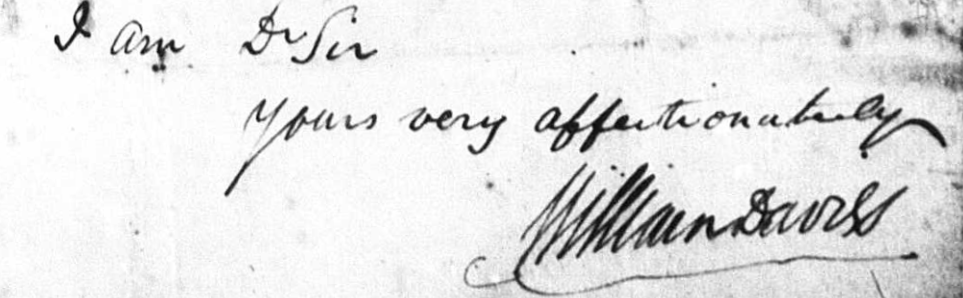 I am Dr Sir
Yours very affectionately
William Davies